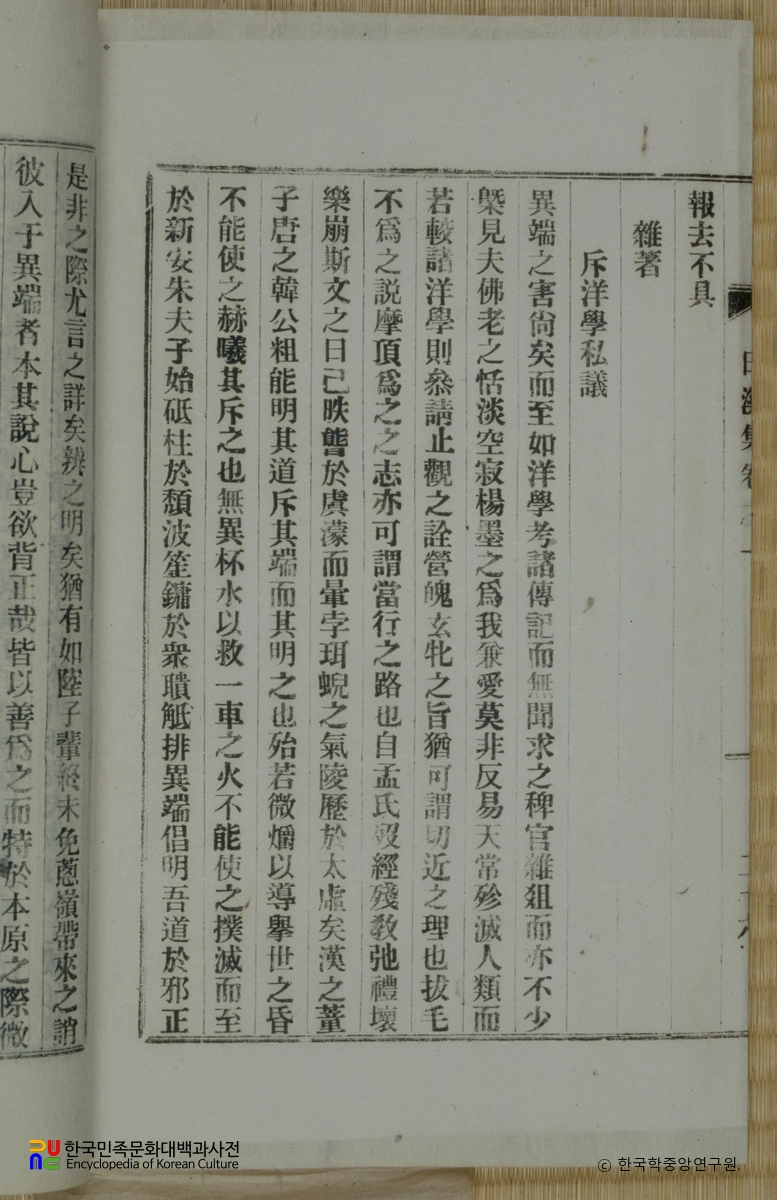 報去不具
雜著
斥洋學私議
異端之害尙矣而至如洋學考諸傳記而無聞求之稗官雜俎而亦不少
槩見夫佛老之恬淡空寂楊墨之爲我兼愛莫非反易天常殄滅人類而
若較諸洋學則叅請止觀之詮營魄玄牝之旨猶可謂切近之理也拔毛
不爲之說摩頂爲之之志亦可謂當行之路也自孟氏歿經殘敎弛禮壞
樂崩斯文之日已昳瞢於虞濛而暈孛珥蜺之氣陵歷於太虛矣漢之董
子唐之韓公粗能明其道斥其端而其明之也殆若微爝以導擧世之昏
不能使之赫曦其斥之也無異杯水以救一車之火不能使之撲滅而至
於新安朱夫子始砥柱於頹波笙鏞於衆聵觝排異端倡明吾道於邪正
是非之際尤言之詳矣辨之明矣猶有如陸子輩終未免蔥嶺帶來之誚
彼入于異端者本其說心豈欲背正哉皆以善爲之而特於本原之際微
集卷
한국민족문화대백과사전
Encyclopedia of Korean Culture
ⓒ 한국학중앙연구원